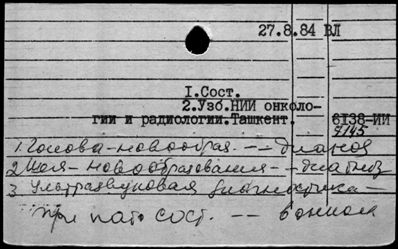 27.8.84 ВЛ
1.Сост.
2.Узб.НИИ онколо-
гии и радиологии.Ташкент. 6138-ИИ
7145
1 Голова-новообраз. -- диагноз
2 Шея-новообразования -- диагноз
3 Ультразвуковая диагностика -
при пат. сост. --